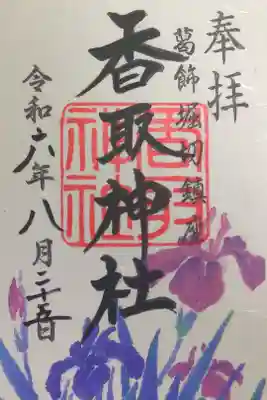 奉拝
葛飾堀切鎮座
香取神社
令和六年八月二十五日
香取神社